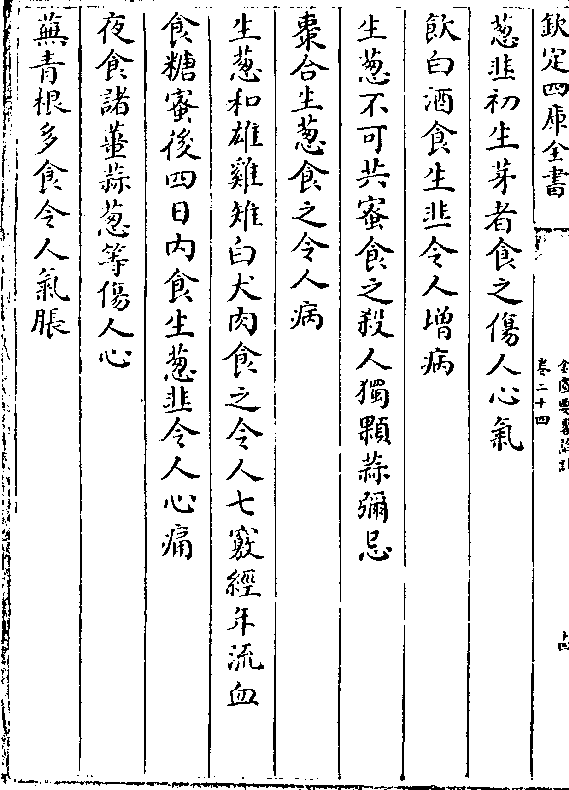 欽定四庫全書
卷二十四
葱韭初生芽者食之傷人心氣
飲白酒食生韭令人增病
生葱不可共蜜食之殺人獨顆蒜彌忌
棗合生葱食之令人病
生葱和雄雞雉白犬肉食之令人七竅經年流血
食糖蜜後四日內食生葱韭令人心痛
夜食諸薑蒜葱等傷人心
蕪青根多食令人氣脹